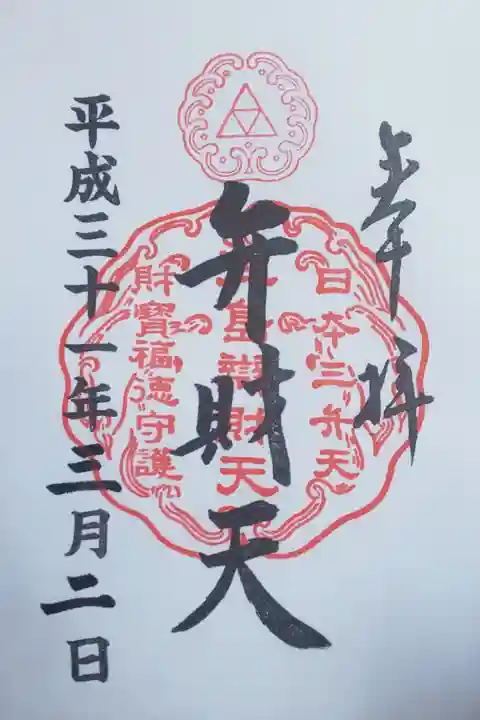 奉拝
日本三弁天
島辨財天
財寶福徳守護
弁財天
平成三十一年三月二日